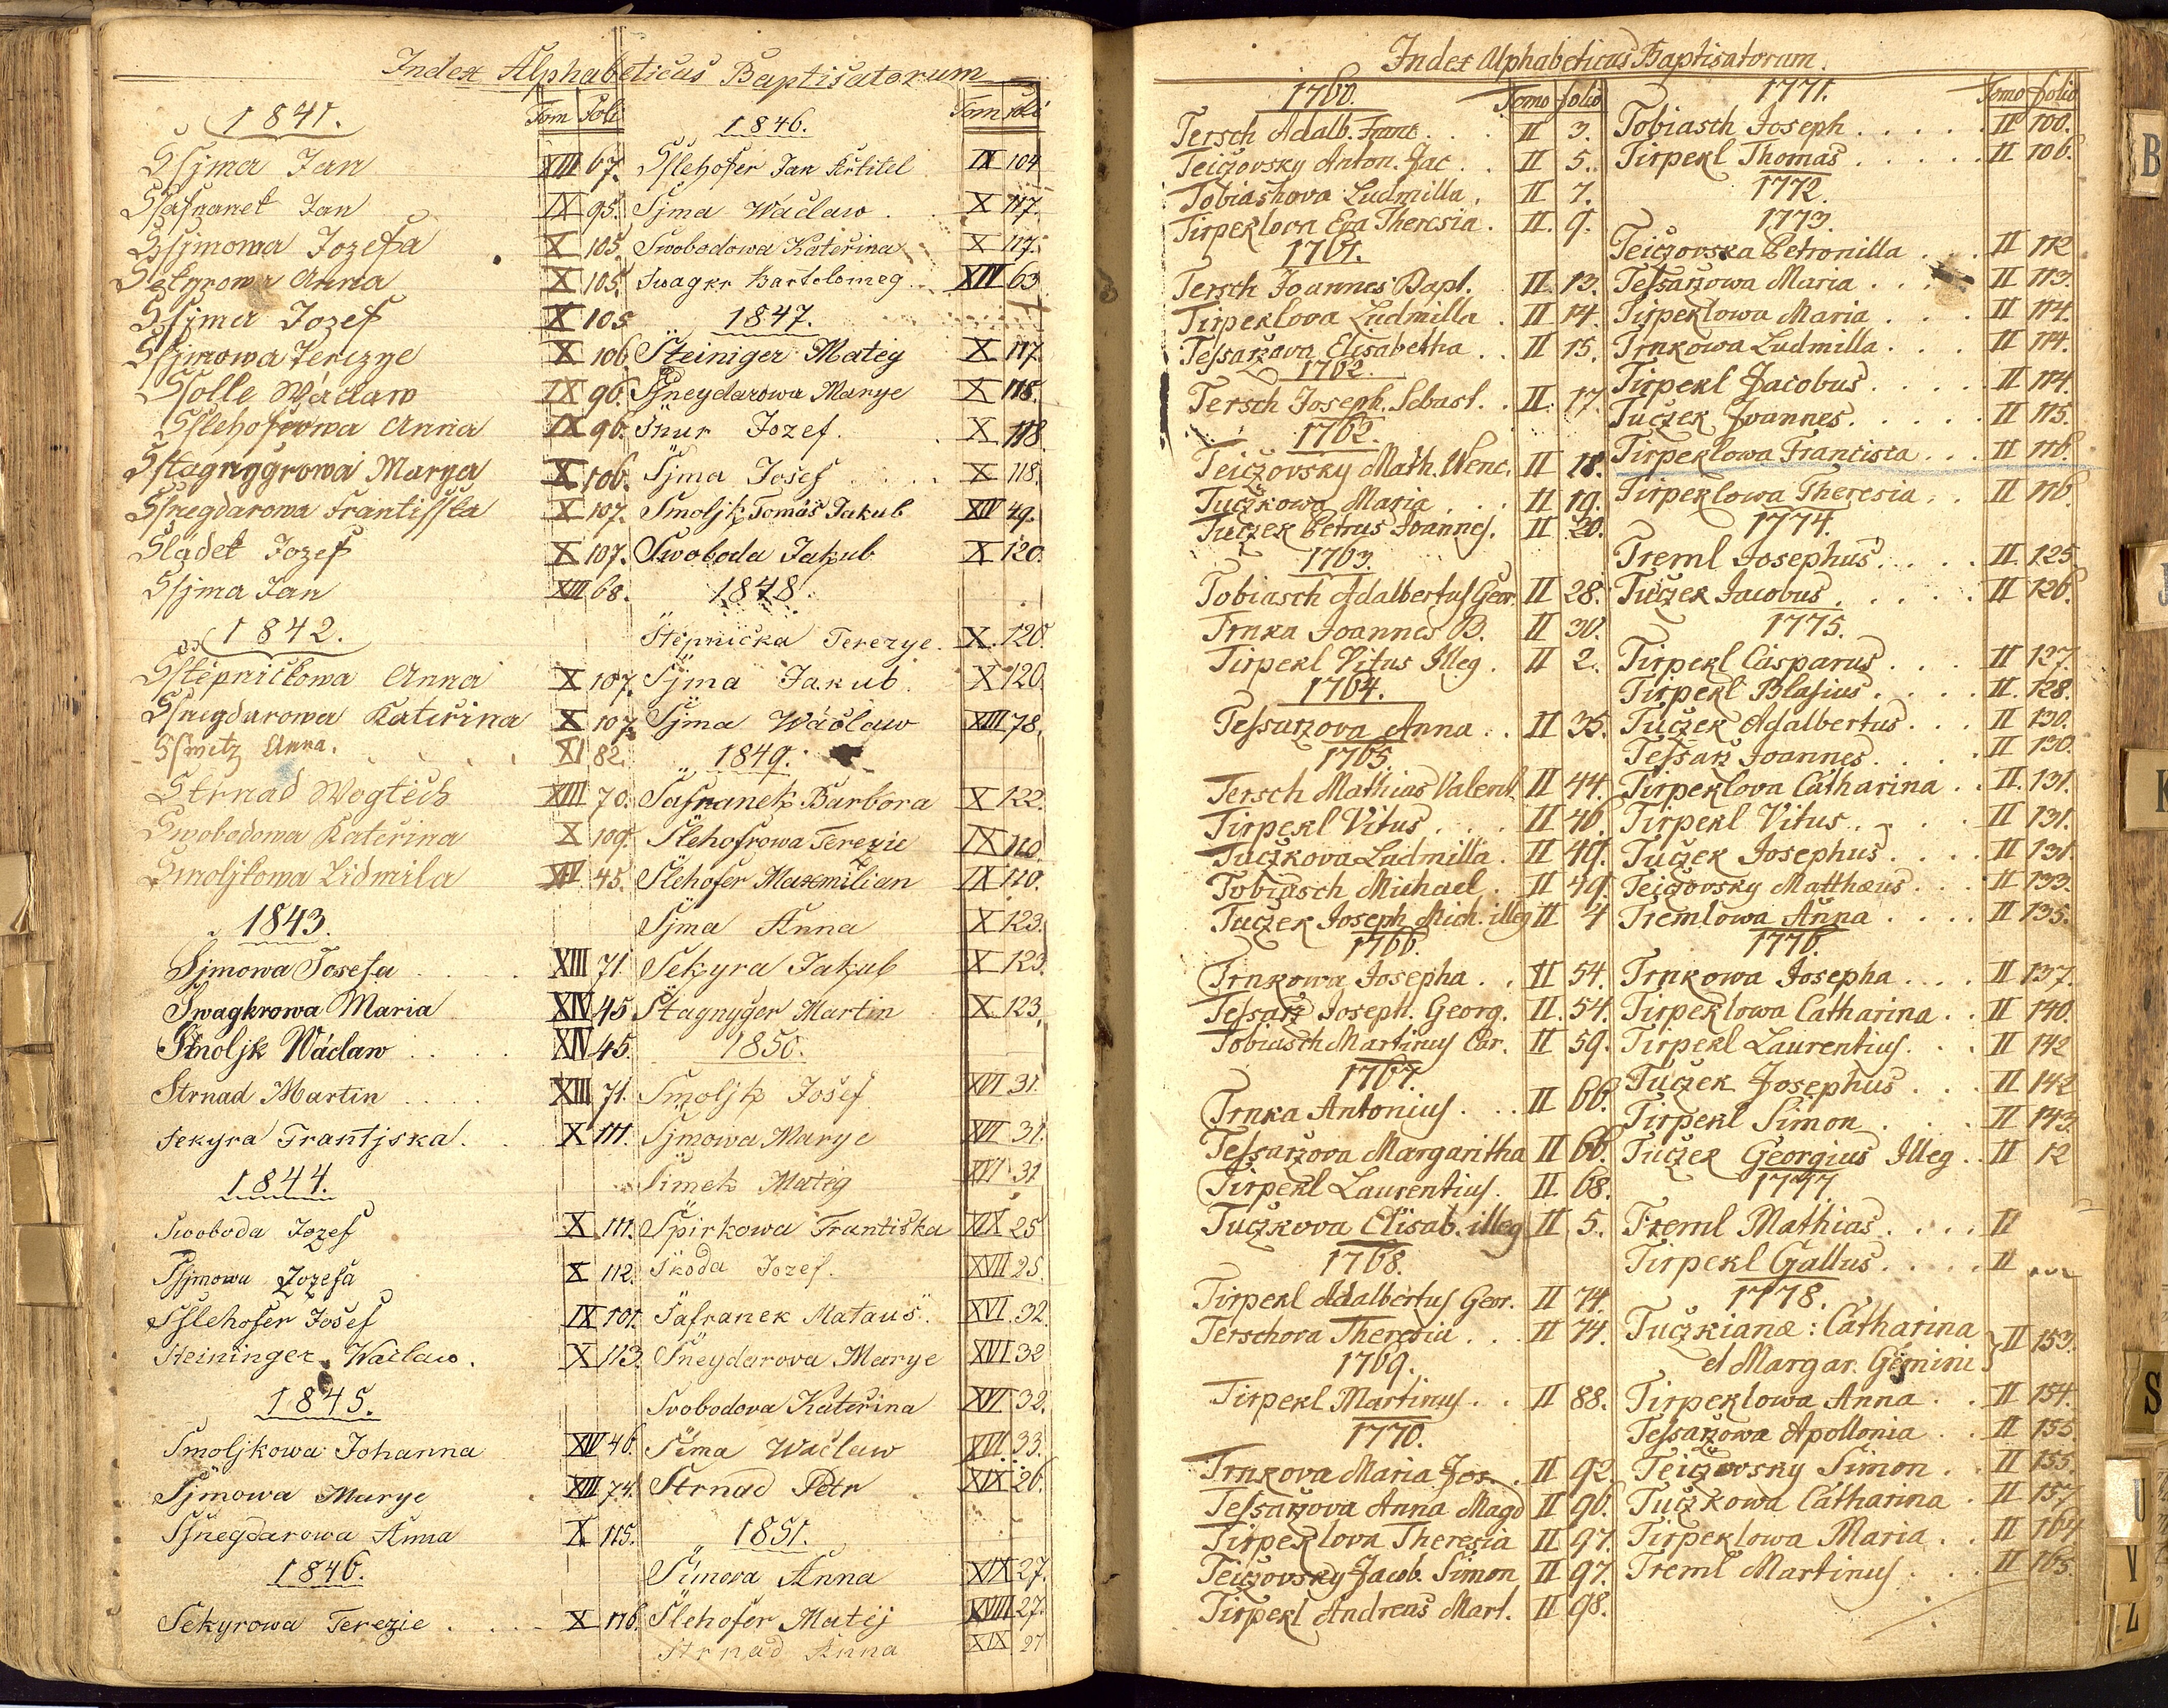 Index Alphabeticus Baptisatorum
Tom Foli
1841.
Ssjma Jan XIII 67.
Ssafranek Jan IX 95.
Ssjmowa Jozefa X 105.
Sekyrowa Anna X 105.
Ssjma Jozef X 105
Ssjmowa Terezye X 106.
Ssolle Wáclaw IX 96.
Sslehofrowa Anna IX 96.
Sstagnygrowa Marya X 106.
Ssnegdarowa Frantisska X 107.
Sládek Jozef X 107.
Ssjma Jan XIII 68.
1842.
Sstěpničkowa Anna X 107.
Ssnegdarowa Kateřina X 107.
Sswetz Anna. XI 82.
Strnad Wogtěch XIII 70.
Swobodowa Kateřina X 109.
Smoljkowa Lidmila XIV 45.
1843.
Sjmowa Josefa XIII 71.
Swagkrowa Maria XIV 45
Smoljk Wáclaw XIV 45.
Strnad Martin XIII 71.
Sekyra Frantjska. X 111.
1844.
Swoboda Jozef X 111.
Ssjmowa Jozefa X 112.
Sslehofer Josef IX 101.
Steininger Waclaw. X 113.
1845.
Smoljkowa Johanna XIV 46.
Sjmowa Marye XIII 74.
Ssnegdarowa Anna X 115.
1846.
Sekyrowa Terezie X 116.
Tom foli
1846.
Sslehofer Jan Křtitel IX 104
Sjma Wáclaw X 117.
Swobodowa Kateřina X 117.
Swagkr Bartolomeg XIV 63
1847.
Šteiniger Mateg X 117.
Šneydarowa Marye X 118.
Šnur Jozef. X 118
Sjma Josef X 118.
Smoljk Tomáš Jakub XIV 49.
Swoboda Jakub X 120.
1848.
Štěpnička Terezye. X 120.
Sjma Jakub. X 120.
Sjma Wáclaw XIII 78.
1849.
Šafranek Barbora X 122.
Šlehofrowa Terezie IX 110.
Šlehofer Maxmilian IX 110.
Sjma Anna X 123.
Sekyra Jakub X 123.
Štagnyger Martin X 123.
1850.
Smoljk Josef XVI 31.
Sjmowa Marye XVI 31.
Šimek Matěg XVI 31
Špirkowa Františka XIX 25
Škoda Jozef. XVII 25.
Šafranek Mataus. XVI 32.
Šneydarova Marye XVI 32
Svobodova Kateřina XVI 32.
Šima Waclaw XVI 33.
Strnad Petr XIX 26.
1851.
Šimova Anna XIX 27.
Šlehofer Matěj XVIII 27.
Strnad Anna XIX 27
Index Alphabeticus Baptisatorum.
1760. Tomo folio
Tersch Adalb. Franc. II 3.
Teiczovsky Anton. Jac. II 5.
Tobiashova Ludmilla. II 7.
Tirpeklova Eva Theresia. II. 9.
1761.
Tersch Joannes Bapt. II. 13.
Tirpeklova Ludmilla. II 14.
Tessarzova Elisabetha. II 15.
1762.
Tersch Joseph. Sebast. II. 17.
1762.
Teiczovsky Math. Wenc. II 18.
Tuczkowa Maria. II 19.
Tuczek Petrus Joannes. II 20.
1763.
Tobiasch Adalbertus Geor. II 28.
Trnka Joannes B. II 30.
Tirpekl Vitus Illeg. II 2.
1764.
Tessarzova Anna. II 35.
1765.
Tersch Mathias Valent. II 44.
Tirpekl Vitus. II 46.
Tuczkova Ludmilla. II 49.
Tobiasch Michael. II 49.
Tuczek Joseph Mich. illeg II 4
1766.
Trnkowa Josepha. II 54.
Tessarz Joseph. Georg. II. 54.
Tobiasch Martinus Car. II 59.
1767.
Trnka Antonius. II 66.
Tessarzova Margaritha II 66.
Tirpekl Laurentius. II. 68.
Tuczkova Elisab. illeg II 5.
1768.
Tirpekl Adalbertus Geor. II 74.
Terschova Theresia. II 74.
1769.
Tirpekl Martinus. II 88.
1770.
Trnkova Maria Jos. II 92.
Tessarzova Anna Magd II 96.
Tirpeklova Theresia II 97.
Teiczovsky Jacob. Simon II 97.
Tirpekl Andreas Mart. II 98.
1771. Tomo folio
Tobiasch Joseph. II 100.
Tirpekl Thomas. II 106.
1772.
1773.
Teiczovska Petronilla. II 112
Tessarzowa Maria. II 113.
Tirpeklowa Maria. II 114.
Trnkowa Ludmilla. II 114.
Tirpekl Jacobus. II 114.
Tuczek Joannes. II 115.
Tirpeklowa Francisca. II 116.
Tirpeklowa Theresia. II 116
1774.
Treml Josephus. II. 125.
Tuczek Jacobus. II 126.
1775.
Tirpekl Casparus. II 127.
Tirpekl Blasius. II. 128.
Tuczek Adalbertus. II 130.
Tessarz Joannes. II 130.
Tirpeklova Catharina. II. 131.
Tirpekl Vitus. II 131.
Tuczek Josephus. II 131.
Teiczovsky Matthæus. II 133.
Tremlowa Anna. II 135.
1776.
Trnkowa Josepha. II 137.
Tirpeklowa Catharina. II 140.
Tirpekl Laurentius. II 142
Tuczek Josephus. II 142
Tirpekl Simon. II 143.
Tuczek Georgius Illeg. II 12
1777.
Treml Mathias. II
Tirpekl Gallus. II
1778.
Tuczkianæ: Catharina
et Margar. Gemini II 153.
Tirpeklowa Anna. II 154.
Tessarzowa Apollonia. II 155.
Teiczovsky Simon. II 155.
Tuczkowa Catharina. II 157
Tirpeklowa Maria. II 164
Treml Martinus. II 165.
B
K
S
U
V
Z